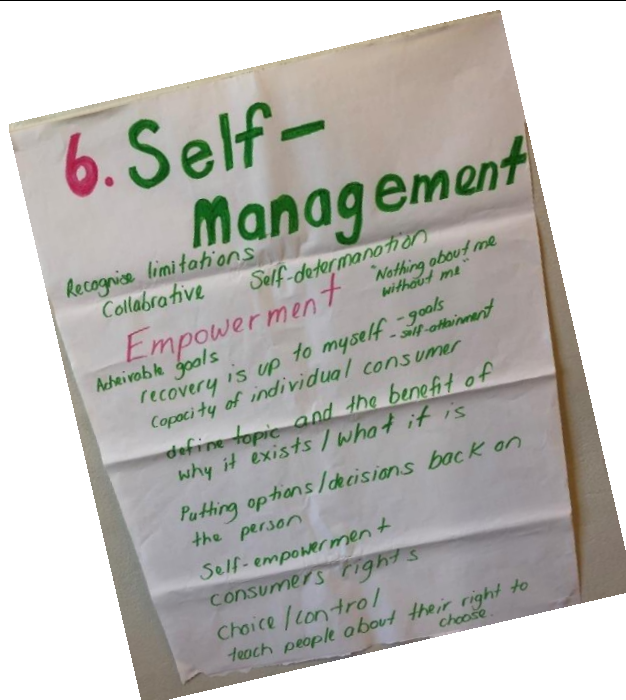 6. Self-
Management
Recognise limitations
Collabrative
Self-determanation
"Nothing about me
without me"
Empowerment
Acheivable goals
recovery is up to myself - goals
- self-attainment
Capacity of individual consumer
define topic and the benefit of
why it exists / what it is
Putting options/decisions back on
the person
Self-empowerment
consumers rights
Choice / control
teach people about their right to
choose.